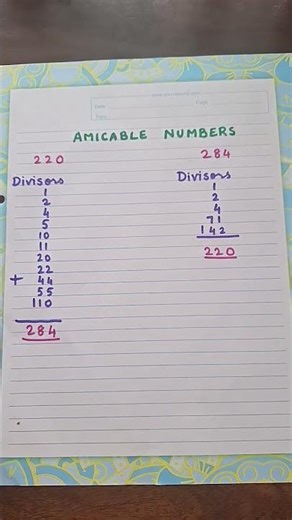 Date
Page
AMICABLE NUMBERS
220
Divisors
1
2
4
5
10
11
20
22
+ 44
55
110
284
284
Divisors
1
2
4
71
142
220